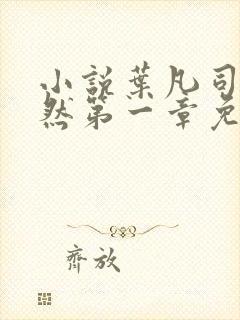 小说葉凡司
然第一章免
齊放